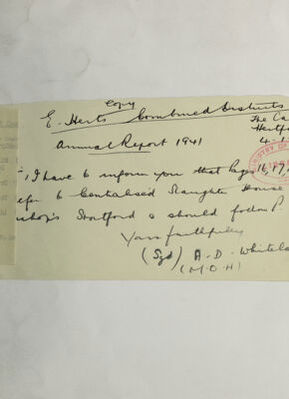 Copy
E. Herts Combined Districts
The Ca
Hertfo
Annual Report 1941
4.1
, I have to inform you that Pages 16, 17,
efer to Centralised Slaughter House
hop's Stortford & should follow P.
Yours faithfully
(Sgd) A. D. Whitela
(M.O.H)